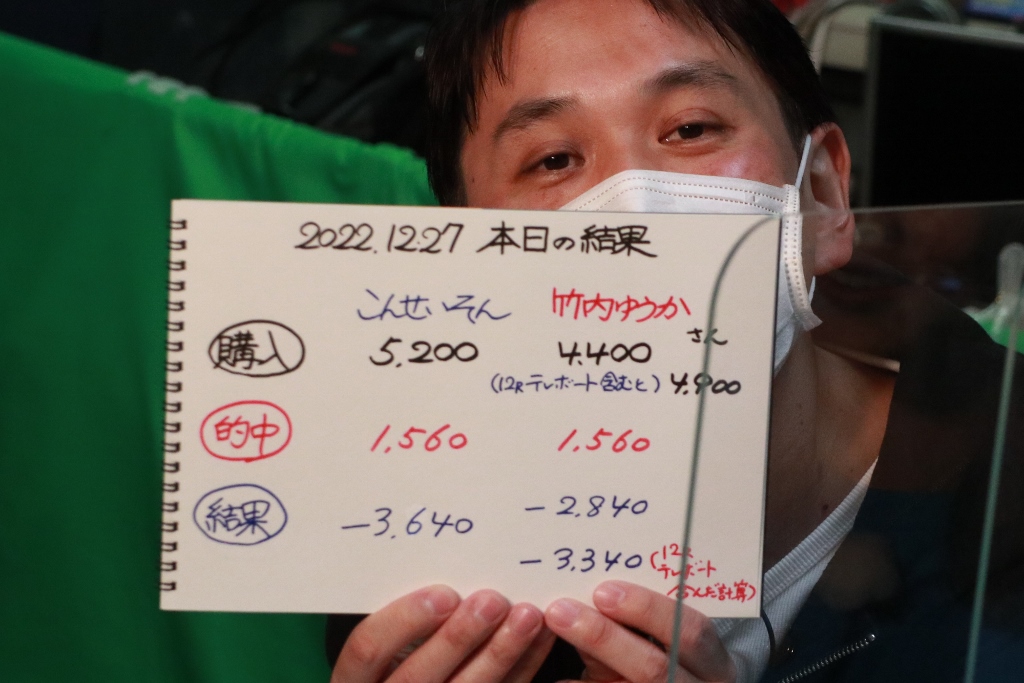 2022.12.27 本日の結果
こんせいそん 竹内ゆうか
さん
購入 5,200 4,400
(12Rテレボート含むと) 4,900
的中 1,560 1,560
結果 -3,640 -2,840
-3,340 (12R
テレボート
含んだ計算)